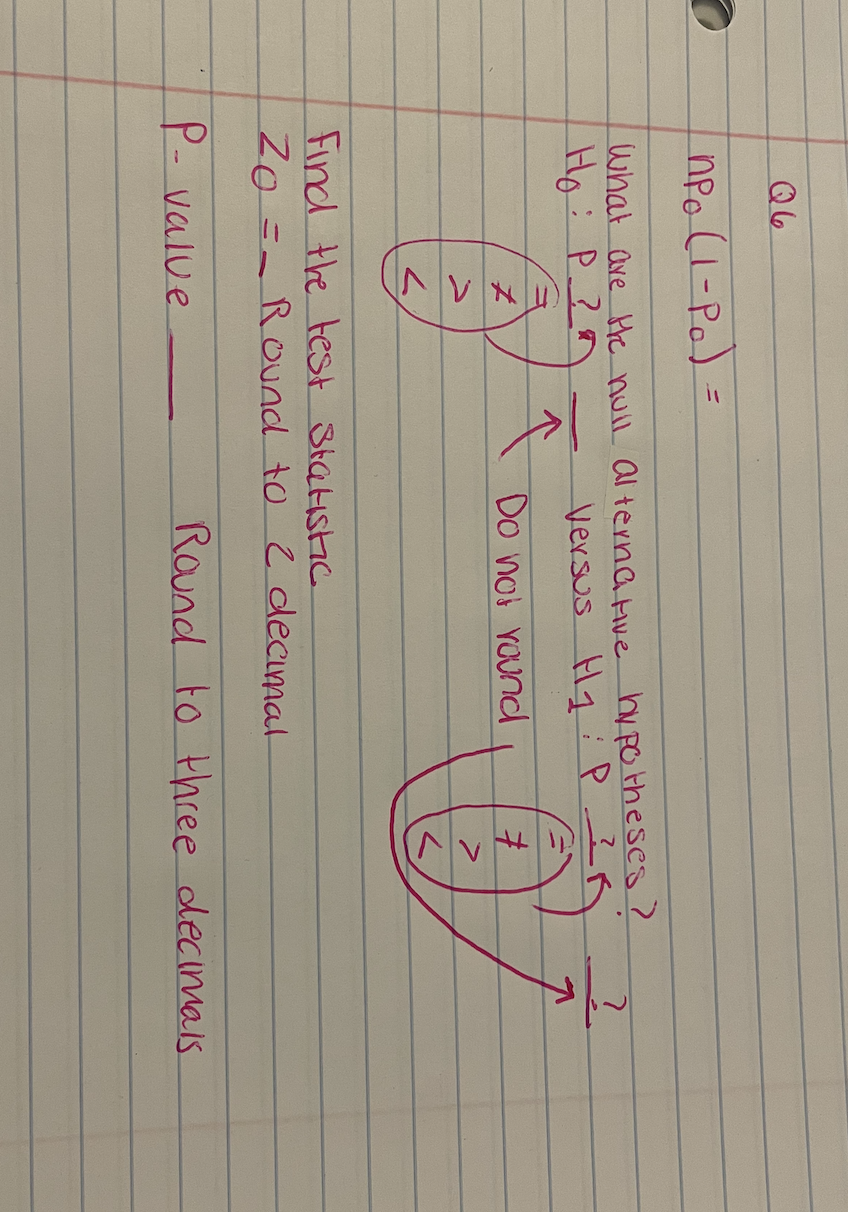 Q6
np₀(1-p₀) =
What are the null alternative hypotheses?
H₀: p ? __ versus H₁: p ? ?
= =
≠ Do not round ≠
> >
< <
Find the test statistic
Z₀ = _ Round to 2 decimal
P-value ___ Round to three decimals